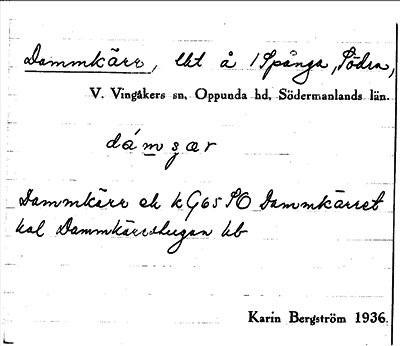 Dammkärr, lht å 1 Spånga, Södra,
V. Vingåkers sn, Oppunda hd, Södermanlands län.
dámʒær
Dammkärr ek kG65 SO Dammkärret
kal Dammkärrstugan hb
Karin Bergström 1936.